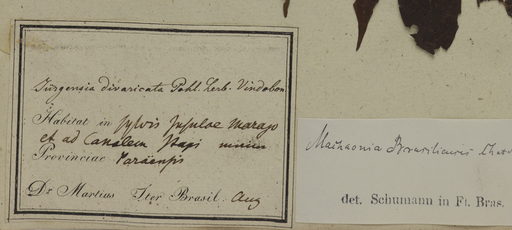 Jürgensia divaricata Pohl. Herb. Vindobon
Habitat in sylvis Insulae Marajo
et ad Canalem
Provinciae Paraënsis
Dr. Martius Iter Brasil. Aug
Machaonia Brasiliensis Cham
det. Schumann in Fl. Bras.